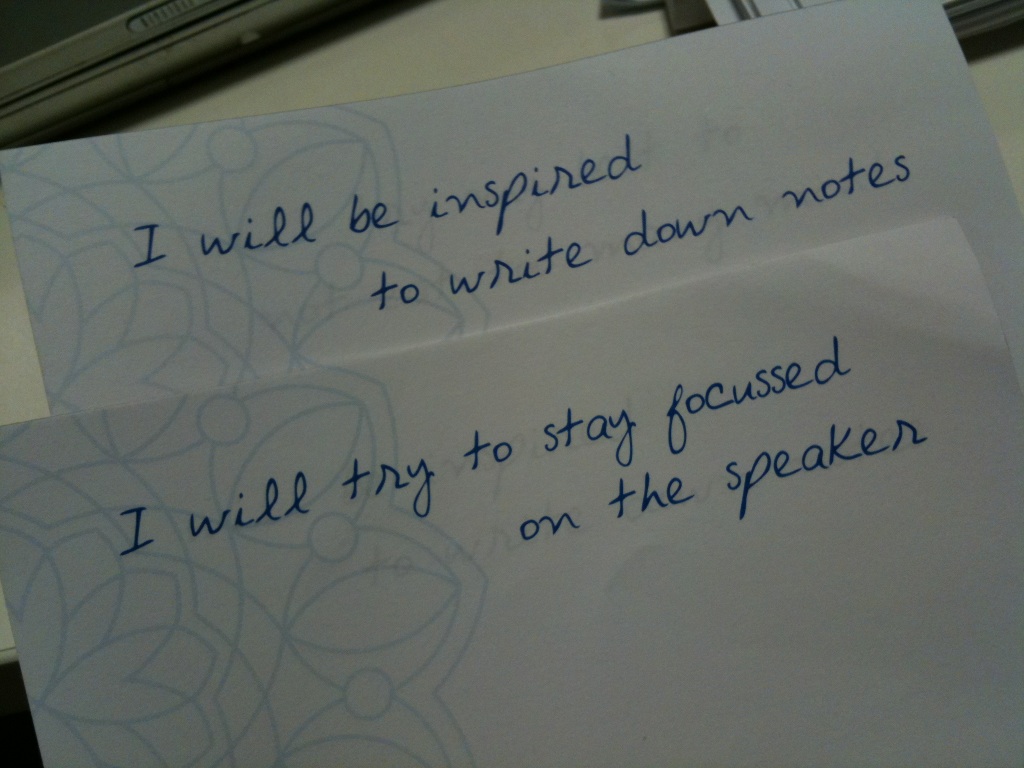 I will be inspired
to write down notes
I will try to stay focussed
on the speaker